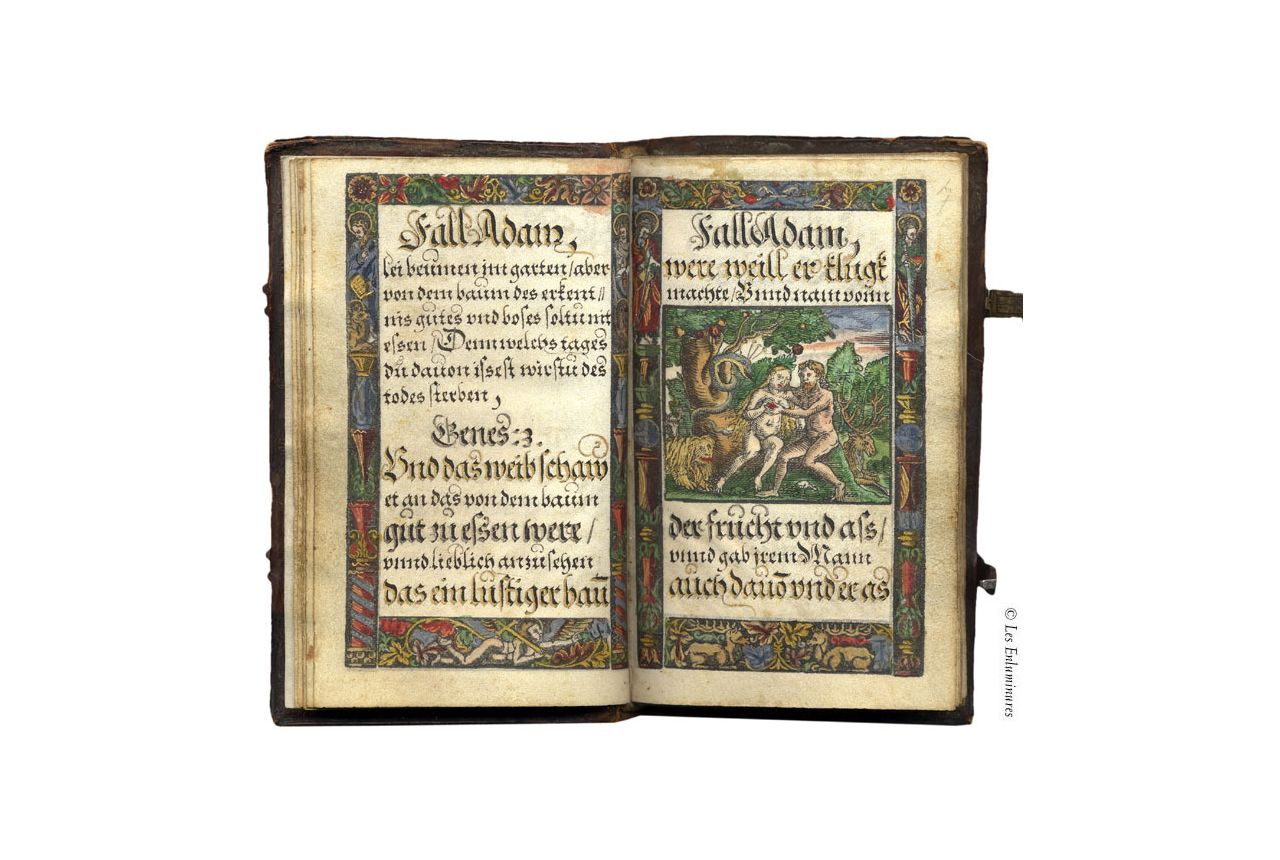 Fall Adam,
lei beumen im garten / aber
von dem baum des erkent /
nis gutes vnd boses soltu nit
essen / Denn welchs tages
du dauon issest wirstu des
todes sterben,
Genes: 3.
Vnd das weib schaw
et an das von dem baum
gut zu essen were /
vnnd lieblich anzusehen
das ein lustiger baū
Fall Adam,
were weill er klugk
machte / Vnnd nam vonn
der frucht vnd ass /
vnnd gab jrem Mann
auch dauō vnd er as
© Les Enluminures